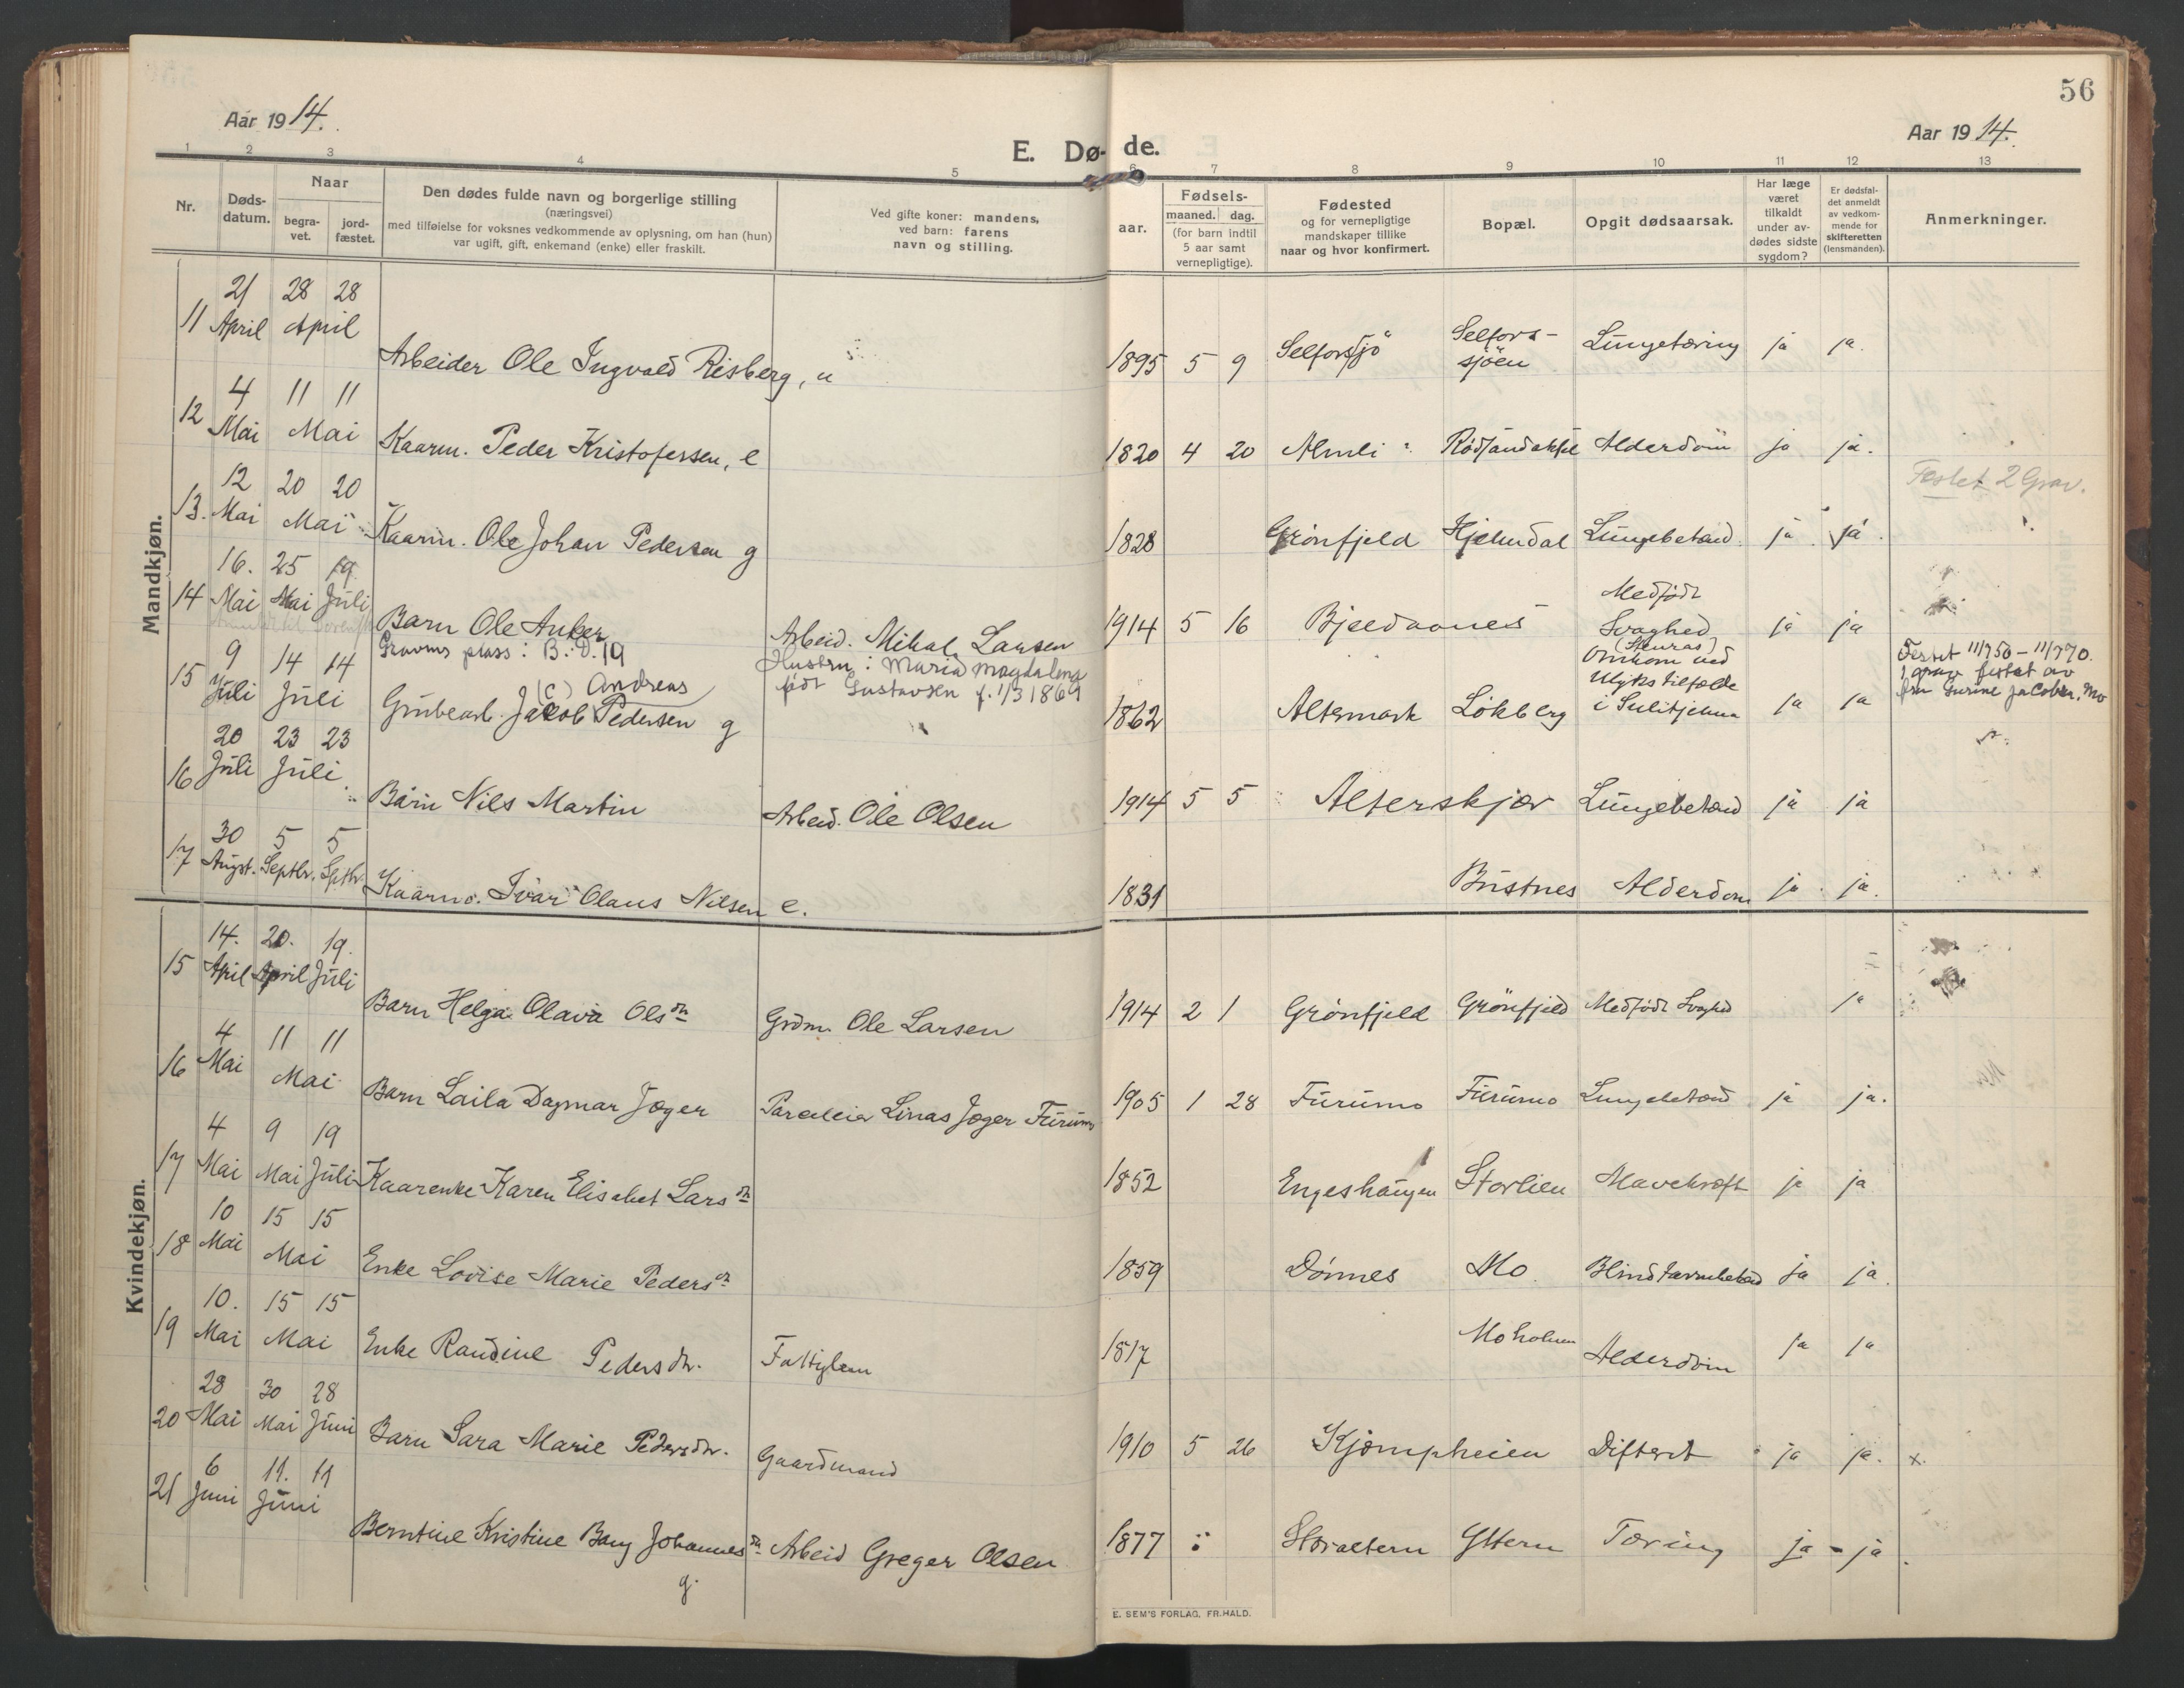 56
Aar 1914.
Aar 1914.
E. Dø- de.
1 2 3 4 5 6 7 8 9 10 11 12 13
Nr.
Døds-datum.
Naar
begra-vet.
jord-fæstet.
Den dødes fulde navn og borgerlige stilling
(næringsvei)
med tilføielse for voksnes vedkommende av oplysning, om han (hun)
var ugift, gift, enkemand (enke) eller fraskilt.
Ved gifte koner: mandens,
ved barn: farens
navn og stilling.
Fødsels-
aar.
maaned. dag.
(for barn indtil
5 aar samt
vernepligtige).
Fødested
og for vernepligtige
mandskaper tillike
naar og hvor konfirmert.
Bopæl.
Opgit dødsaarsak.
Har læge
været
tilkaldt
under av-
dødes sidste
sygdom?
Er dødsfal-
det anmeldt
av vedkom-
mende for
skifteretten
(lensmanden).
Anmerkninger.
Mandkjøn.
11 21 April 28 28 April Arbeider Ole Ingvald Risberg, u 1895 5 9 Selforssjö Selfors-sjöen Lungetæring ja ja.
12 4 Mai 11 11 Mai Kaarm. Peder Kristofersen, e 1820 4 20 Almli Alderdom ja ja.
Festet 2 Grav.
13. 12 Mai 20 20 Mai Kaarm. Ole Johan Pedersen g 1828 Grönfjeld Hjelmdal Lungebetænd. ja ja.
14 16. Mai 25 Mai 19 Juli Barn Ole Anker Arbeid. Mikal Larsen 1914 5 16 Bjeldaanes Medfödt Svaghed ja ja
Gravens plass: B. D. 19
Hustru: Maria Magdalena
født Gustavsen f. 1/3 1869
15 9 Juli 14 14 Juli Grubearb. Jakob (c) Andreas Pedersen g 1862 Altermark Lökberg Omkom ved Ulykstilfælde i Sulitjelma ja ja
Festet 11/7 50 – 11/7 70.
1 grav festet av
fru Surine Jacobsen. Mo
16 20 Juli 23 23 Juli Barn Nils Martin Arbeid. Ole Olsen 1914 5 5 Alterskjær Lungebetænd ja ja
17 30 Augst. 5 Septbr. 5 Septbr. Kaarmd. Ivar Olaus Nilsen e. 1831 Bustnes Alderdom ja ja.
Kvindekjøn.
15 14. April 20. April 19. Juli Barn Helga Olava Olsdtr Grdm. Ole Larsen 1914 2 1 Grönfjeld Grönfjeld Medfödt Svaghed ja
16 4 Mai 11 11 Mai Barn Laila Dagmar Jæger Linas Jæger Furumo 1905 1 28 Furumo Furumo Lungebetænd ja ja.
17 4 Mai 9 Mai 19 Juli Kaarenke Karen Elisabet Larsdtr 1852 Engeshaugen Storlien Mavekræft ja ja
18 10 Mai 15 15 Mai Enke Lovise Marie Pedersdtr 1859 Dönnes Mo. Blindtarmbetænd ja ja.
19 10. Mai 15 15 Mai Enke Randine Pedersdtr. Fattiglem 1817 Moholmen Alderdom ja ja
20 28 Mai 30 Mai 28 Juni Barn Sara Marie Pedersdtr. Gaardmand 1910 5 26 Kjæmpheien Difterit ja ja. x.
21 6 Juni 11. 11 Juni Berntine Kristine Bang Johannesdtr g. Arbeid Greger Olsen 1877 Storaltern Yttern Tæring ja - ja.
E. SEM'S FORLAG, FR.HALD.